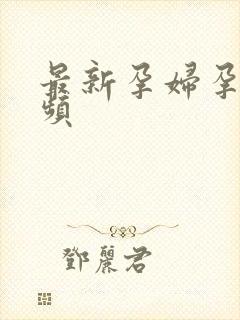 最新孕婦孕
頻
鄧麗君